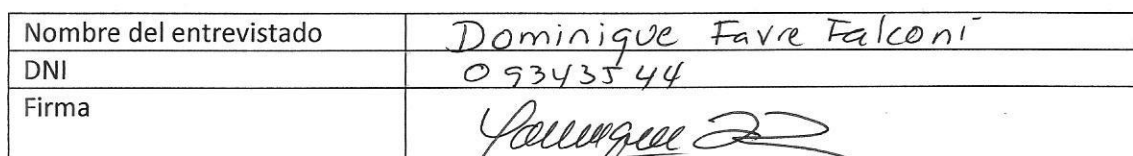 Nombre del entrevistado Dominique Favre Falconí
DNI 09343544
Firma